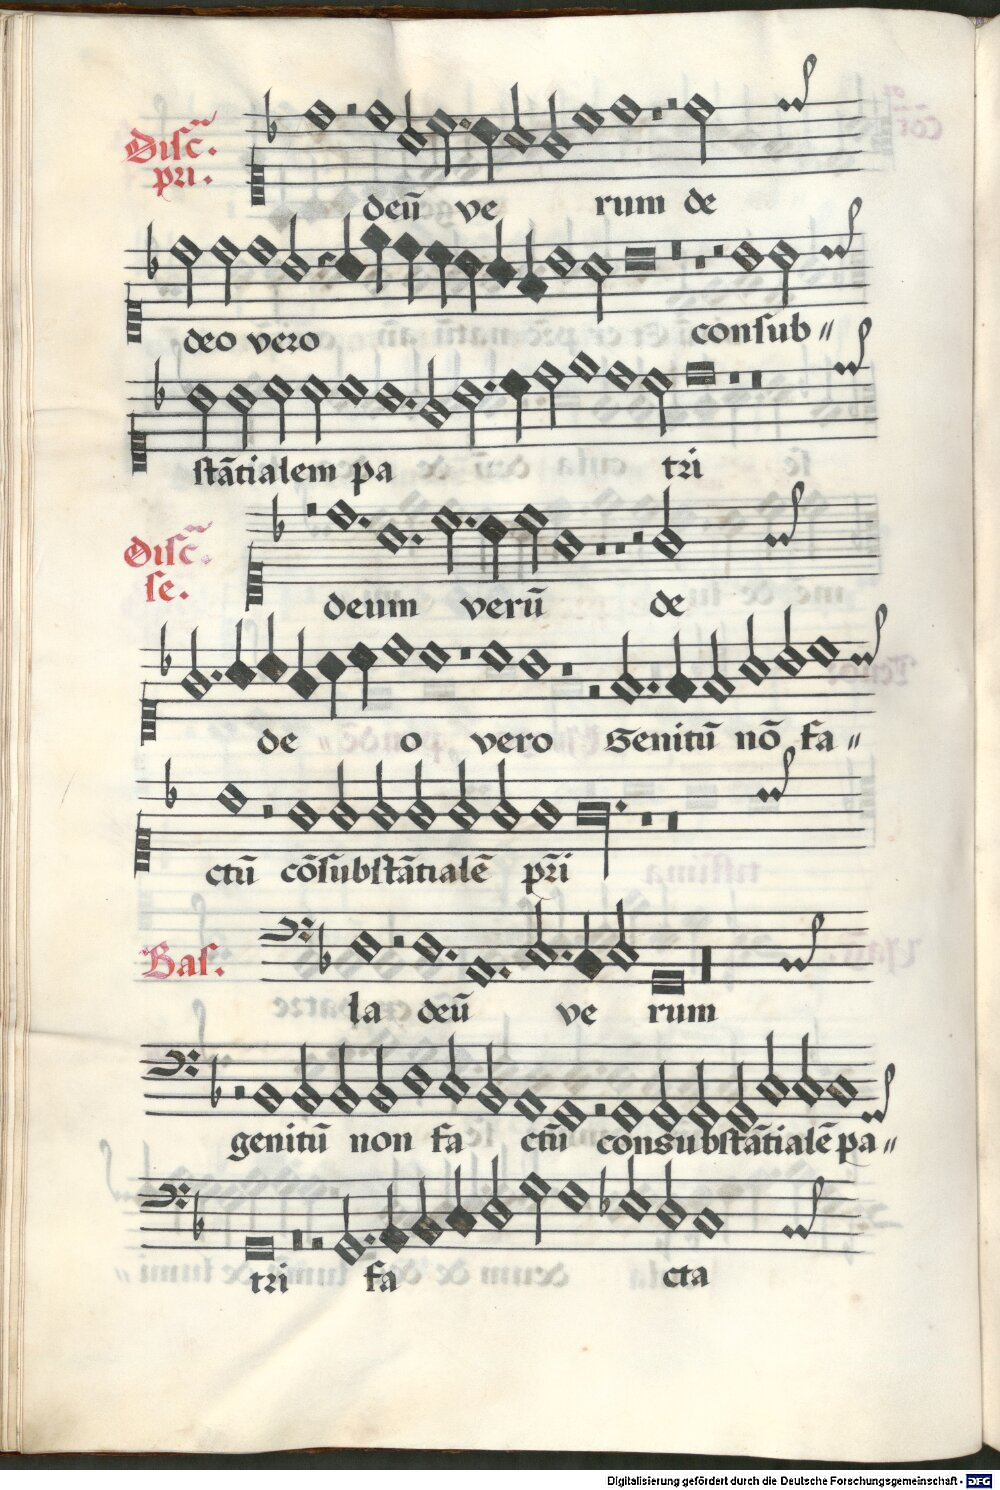 Disc̃.
pri.
deū ve rum de
deo vero consub〃
stātialem pa tri
Disc̃.
se.
deum verū de
de o vero Genitū nō fa〃
ctū cōsubstātialē pr̄i
Bas.
la deū ve rum
genitū non fa ctū consubstātialē pa〃
tri fa cta
Digitalisierung gefördert durch die Deutsche Forschungsgemeinschaft - DFG